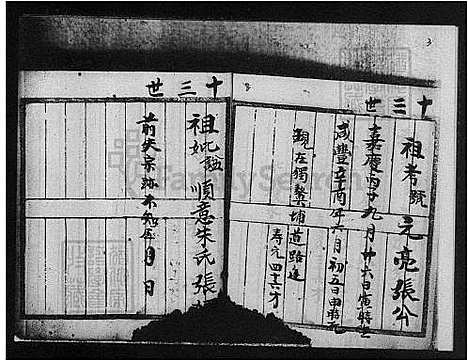 十三世
祖考號 元亮張公
嘉慶丙子九月廿六日寅時生
咸豐辛酉年六月初五日申時死
現在獨鰲埔道路邊
壽元四十六才
十三世
祖妣謚 順意朱氏張
前失宗跡不知年月日
FamilySearch
3